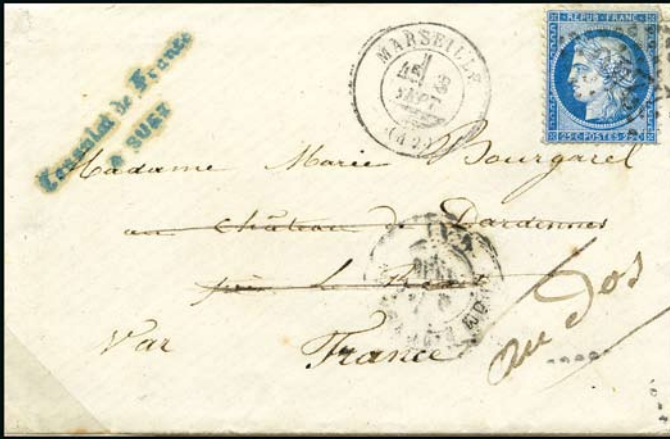 Consulat de France
à SUEZ
MARSEILLE
SEPT
REPUB. FRANC.
25 C. POSTES 25 C.
Madame Marie Bourgarel
au château de Dardennes
près Le
Var France
au dos